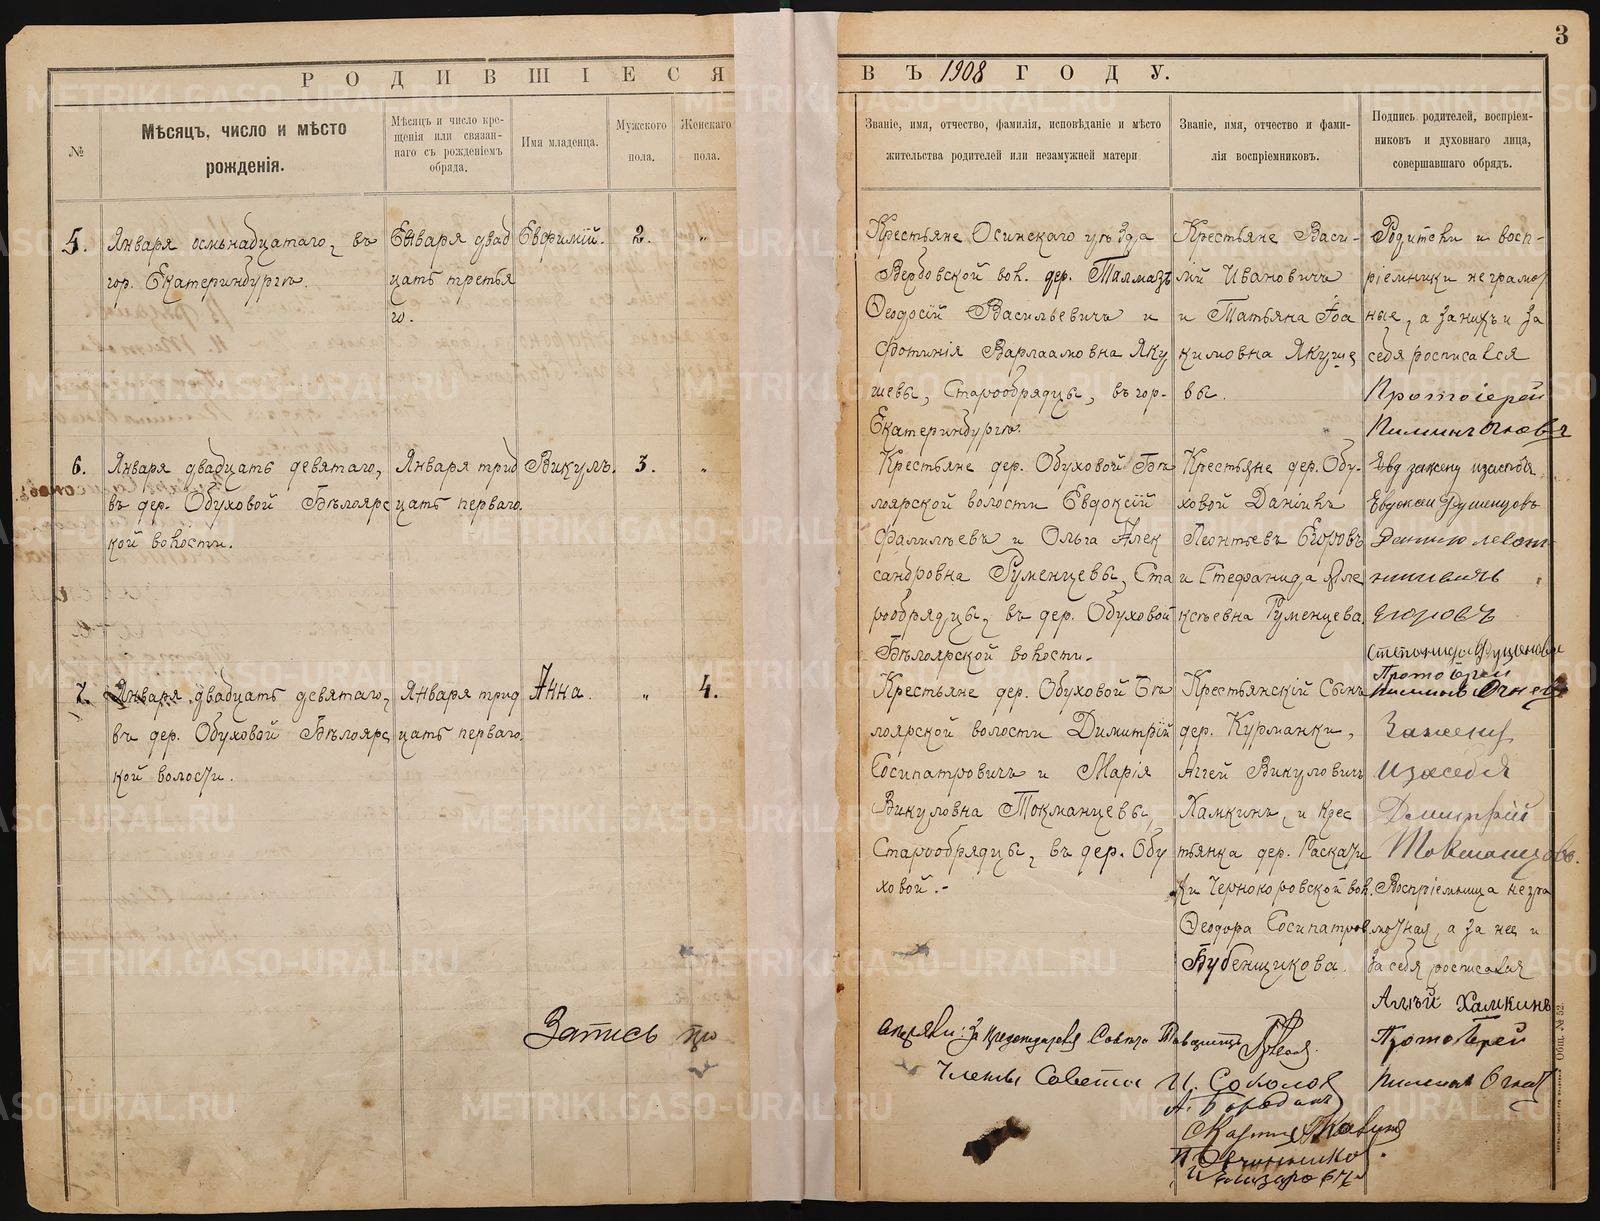 3
РОДИВШІЕСЯ ВЪ 1908 ГОДУ.
№
Мѣсяцъ, число и мѣсто
рожденія.
Мѣсяцъ и число кре-
щенія или связан-
наго съ рожденіемъ
обряда.
Имя младенца.
Мужского
пола.
Женскаго
пола.
Званіе, имя, отчество, фамилія, исповѣданіе и мѣсто
жительства родителей или незамужней матери
Званіе, имя, отчество и фами-
лія воспріемниковъ.
Подпись родителей, воспріем-
никовъ и духовнаго лица,
совершавшаго обрядъ.
5.
Января осмьнадцатаго, въ
гор. Екатеринбургѣ.
Января двад
цать третья
го.
Евфимій.
2.
"
Крестьяне Осинскаго уѣзда
Вербовской вол. дер. Талмазъ
Ѳеодосій Васильевичъ и
Фотинія Варлаамовна Яку
шевы, Старообрядцы, въ гор.
Екатеринбургѣ.
Крестьяне Васи-
лій Ивановичъ
и Татьяна Іоа
кимовна Якуше
вы.
Родители и восп-
ріемники неграмот
ные, а за нихъ и за
себя росписался
Протоіерей
6.
Января двадцать девятаго,
въ дер. Обуховой Бѣлоярс
кой волости.
Января трид
цать перваго.
Викулъ.
3.
"
Крестьяне дер. Обуховой Бѣ
лоярской волости Евдоксій
Фалилѣевъ и Ольга Алек
сандровна Румянцевы, Ста
рообрядцы, въ дер. Обуховой
Бѣлоярской волости.
Крестьяне дер. Обу-
ховой Даніилъ
Леонтьевъ Егоровъ
и Стефанида Але
ксѣевна Руменцева.
Егоровъ
Протоіерей
7.
Января двадцать девятаго,
въ дер. Обуховой Бѣлоярс
кой волости.
Января трид
цать перваго.
Анна.
"
4.
Крестьяне дер. Обуховой Бѣ
лоярской волости Димитрій
Сосипатровичъ и Марія
Викуловна Токманцевы,
Старообрядцы, въ дер. Обу
ховой.-
Крестьянскій Сынъ
дер. Курманки,
Аггей Викуловичъ
Хамкинъ, и крес
тьянка дер. Раскати
хи Чернокоровской вол.
Ѳеодора Сосипатров
Бубенщикова.
За жену
и за себя
Дмитрій
Токманцовъ.
Воспріемница негра
мотная, а за нее и
за себя росписался
Аггѣй Хамкинъ
Протоіерей
Запись про
Члены Совѣта И. Соколов
А. Бородинъ
Общ. № 52.
METRIKI.GASO-URAL.RU